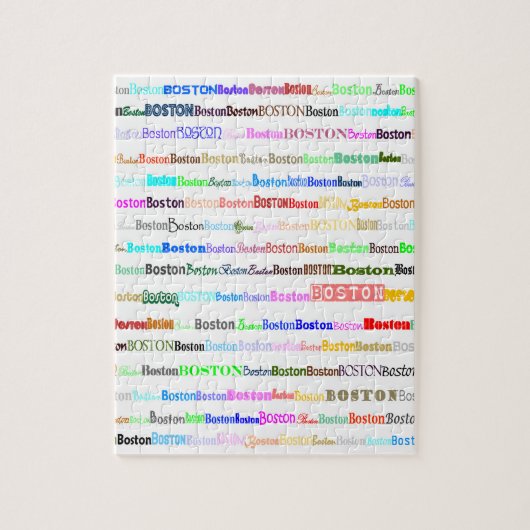 Boston Boston BOSTON Boston Boston Boston Boston Boston Boston
Boston BOSTON Boston Boston BOSTON Boston Boston Boston
Boston Boston BOSTON Boston BOSTON Boston Boston
Boston Boston Boston Boston Boston Boston Boston Boston
Boston Boston Boston Boston Boston Boston Boston Boston
Boston Boston Boston Boston BOSTON Boston BOSTON Boston
Boston Boston Boston Boston Boston BOSTON Boston Boston
Boston Boston Boston Boston Boston Boston Boston Boston
Boston Boston Boston Boston Boston BOSTON Boston Boston
Boston Boston Boston Boston Boston BOSTON BOSTON
Boston Boston Boston Boston Boston Boston Boston Boston Boston
Boston BOSTON Boston Boston Boston Boston Boston Boston
Boston Boston BOSTON Boston Boston Boston BOSTON Boston
Boston Boston Boston Boston Boston BOSTON Boston
Boston Boston Boston Boston Boston Boston Boston Boston Boston
Boston Boston BOSTON Boston BOSTON Boston Boston Boston Boston Boston